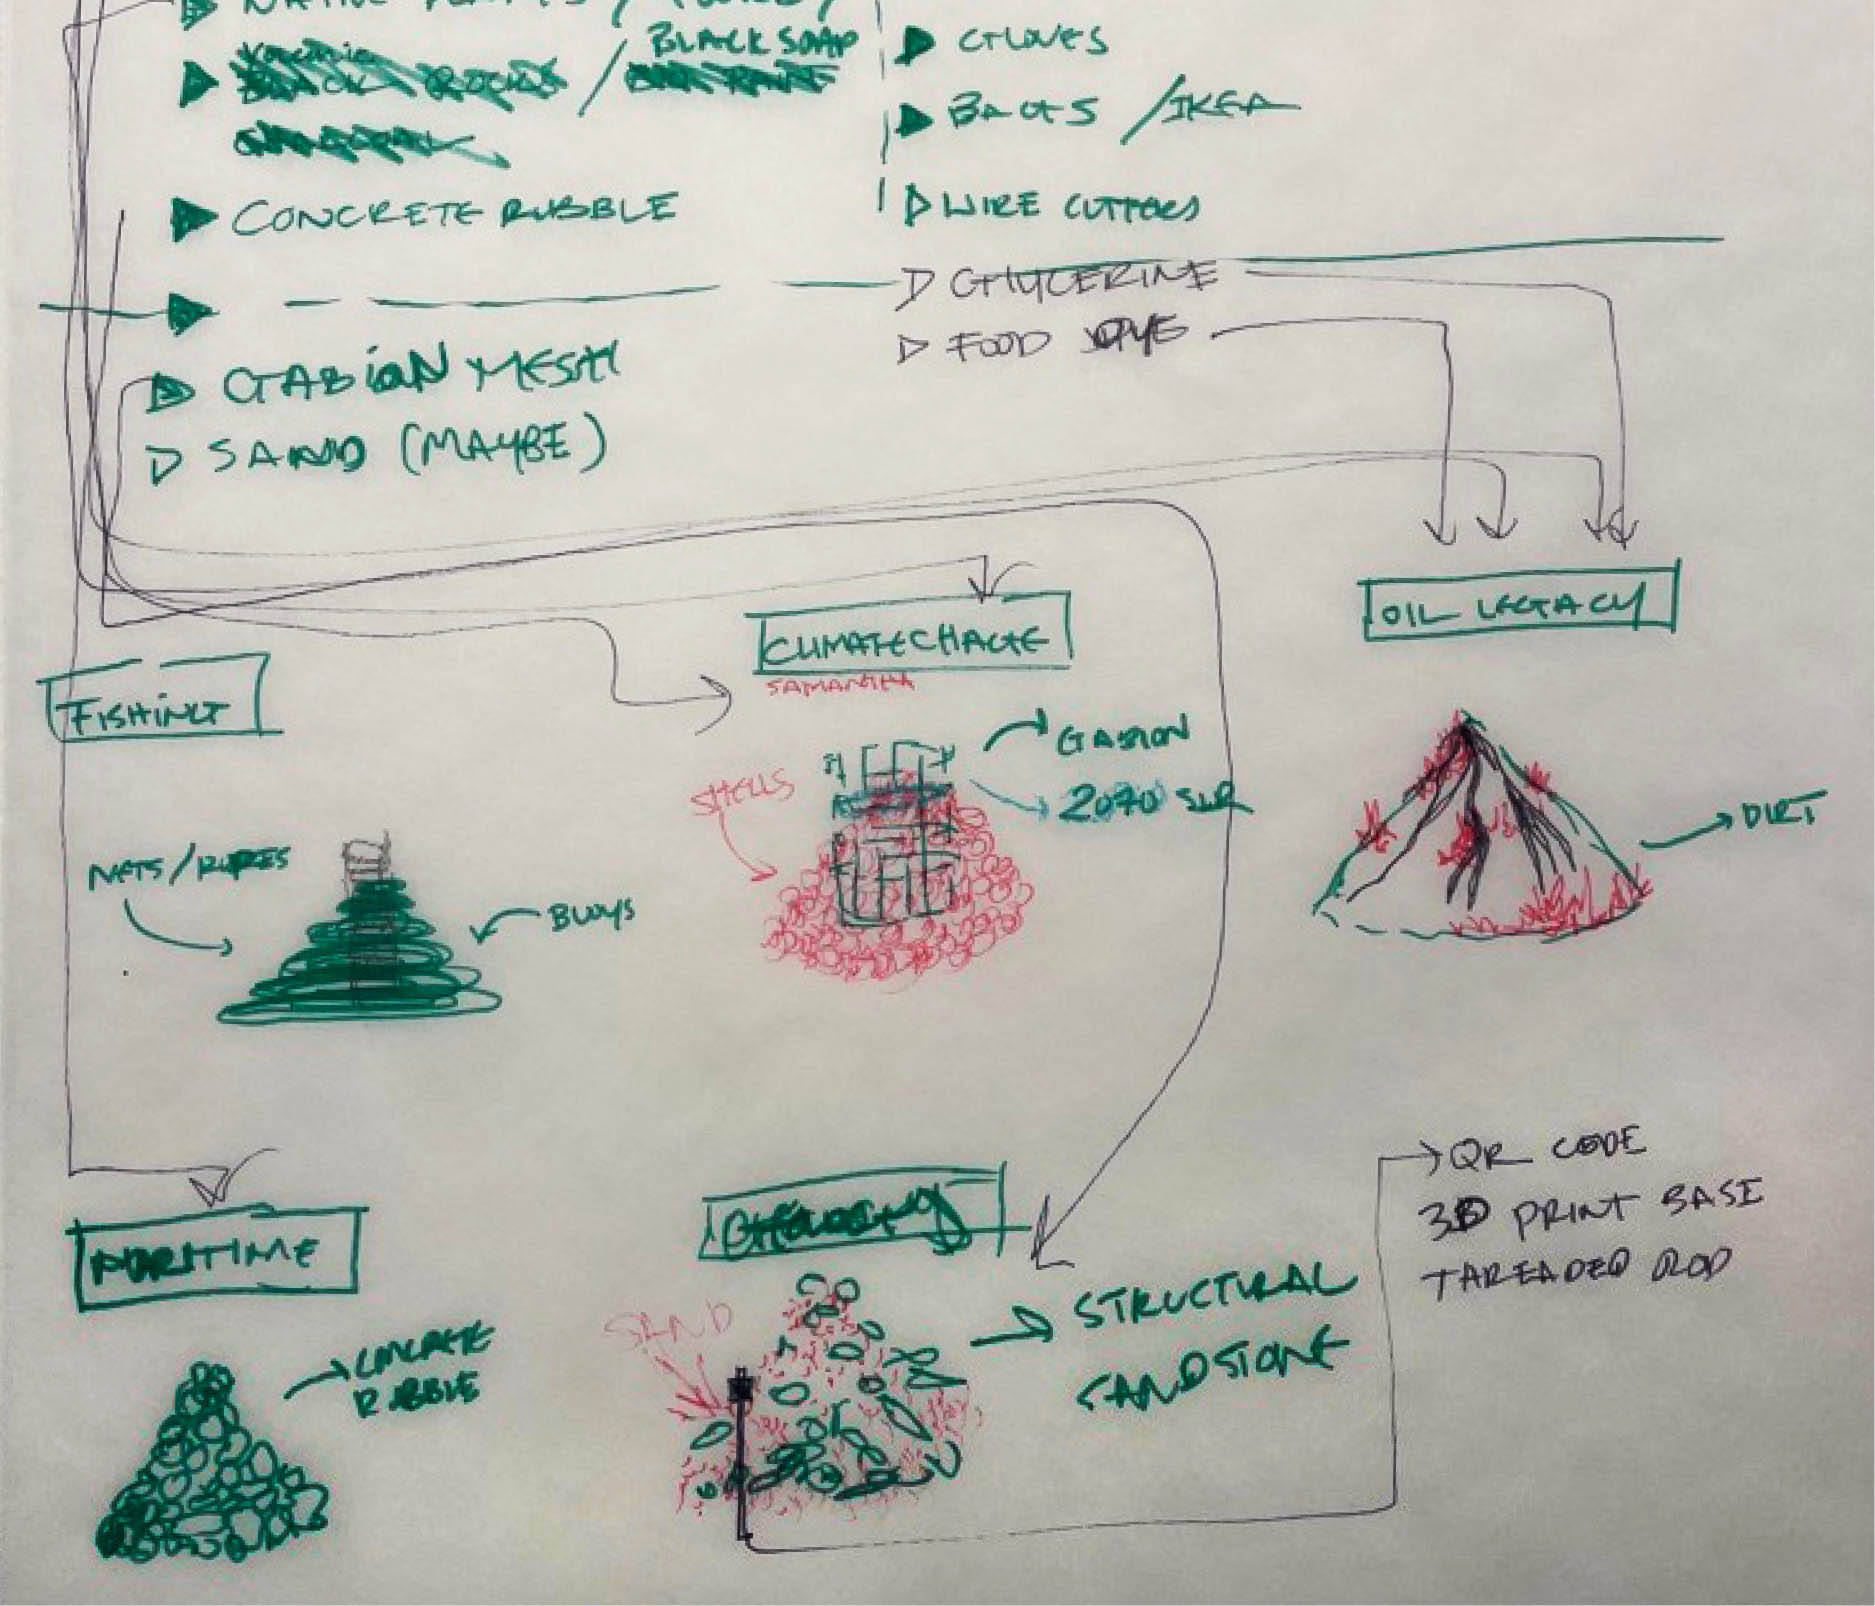 NATIVE PLANTS /
BLACK ROCKS / BLACK SOAP
CONCRETE RUBBLE
GLOVES
BAGS / IKEA
WIRE CUTTERS
GLYCERINE
FOOD DYE
GABION MESH
SAND (MAYBE)
OIL LEGACY
CLIMATE CHAGE
SAMANTHA
FISHING
GABION
2070 SLR
SHELLS
DIRT
NETS / ROPES
BUOYS
QR CODE
3D PRINT BASE
TAREADED ROD
GEOLOGY
MARITIME
STRUCTURAL
SANDSTONE
SAND
CONCRETE
RUBBLE